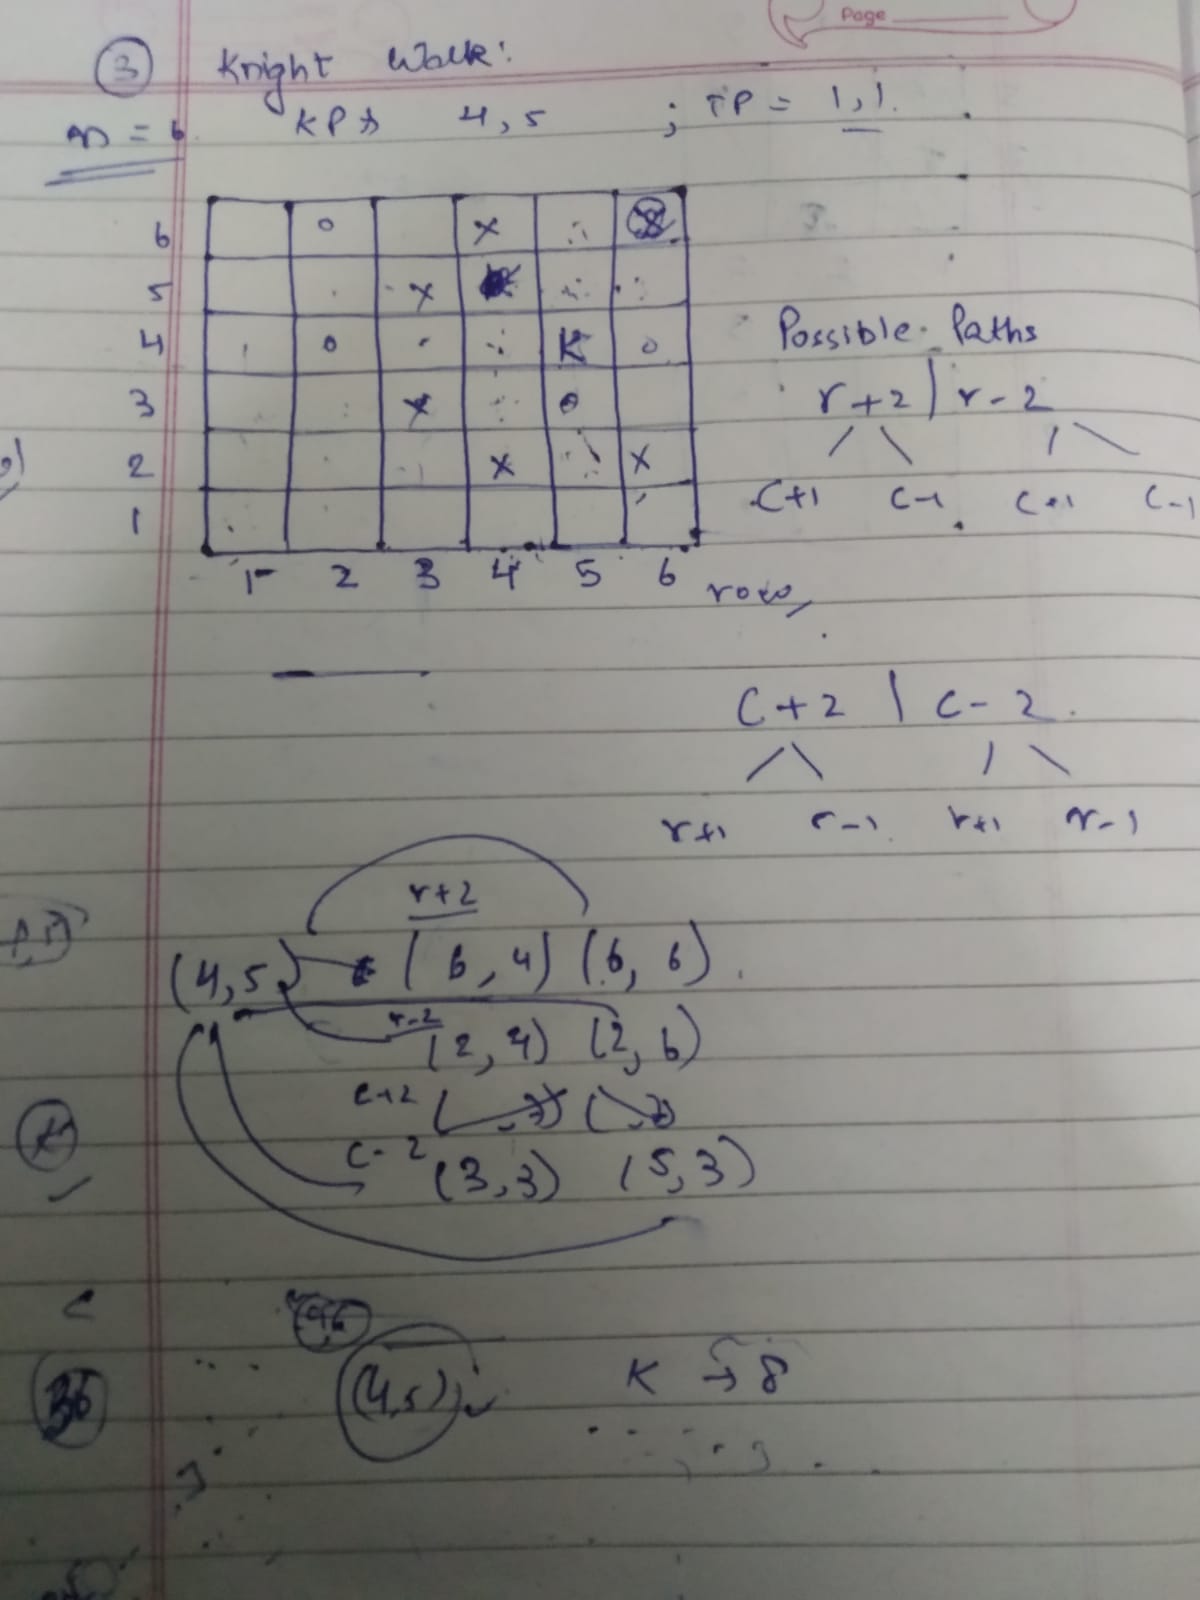 Page
③ Knight Walk:
n = 6 KP → 4,5 ; TP = 1,1.
6 o x
5 x
4 o K o
3 x o
2 x x
1
1 2 3 4 5 6 rows
Possible Paths
r+2 | r-2
C+1 C-1 C+1 C-1
C+2 | C-2.
r+1 r-1 r+1 r-1
r+2
(4,5) (6,4) (6,6).
r-2 (2,4) (2,6)
C+2
C-2 (3,3) (5,3)
C
36 (4,5) K → 8